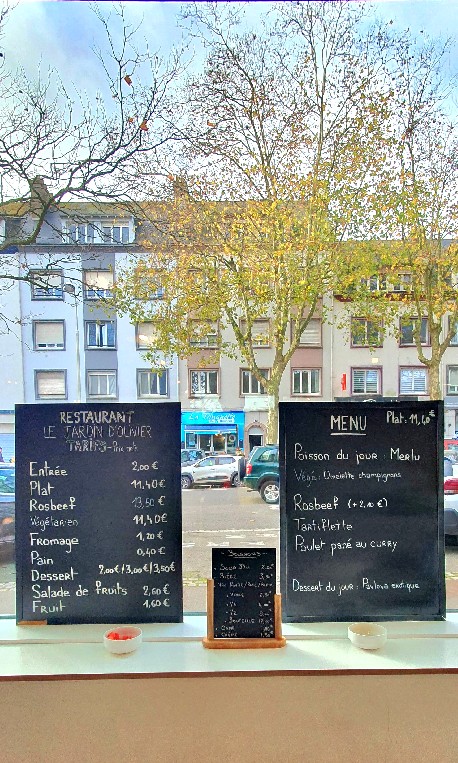 RESTAURANT
LE JARDIN D'OLIVIER
TARIFS
Entrée 2,00€
Plat 11,40€
Rosbeef 13,50€
Végétarien 11,40€
Fromage 1,20€
Pain 0,40€
Dessert 2,00€/3,00€/3,50€
Salade de fruits 2,60€
Fruit 1,60€
BOISSONS
MENU Plat: 11,40€
Poisson du jour : Merlu
champignons
Rosbeef (+2,10€)
Tartiflette
Poulet pané au curry
Dessert du jour : Pavlova exotique